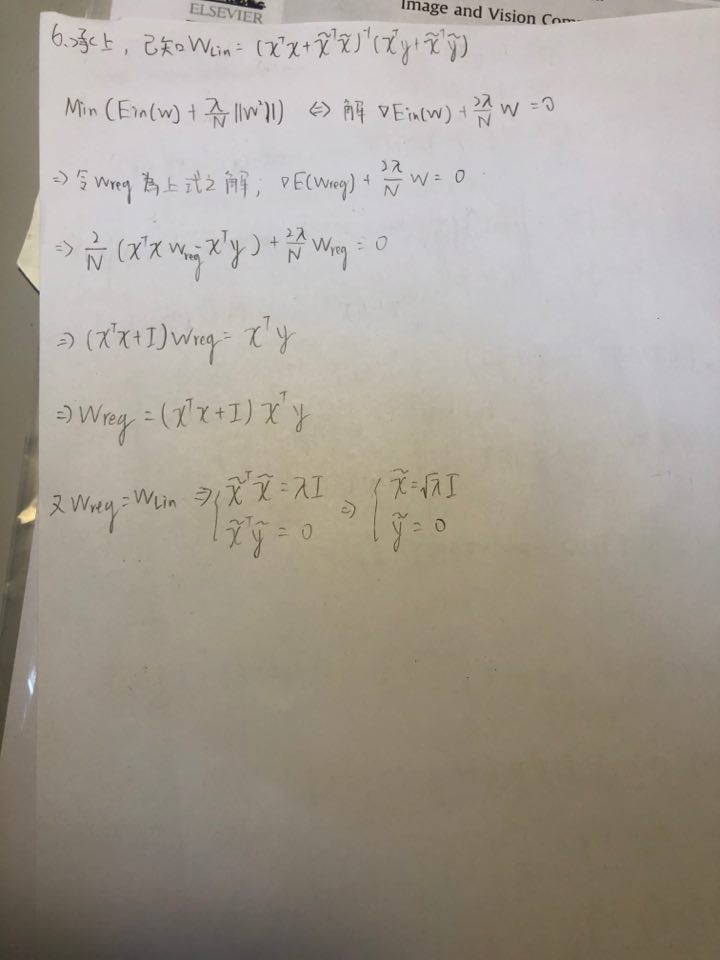 ELSEVIER
Image and Vision Com
6. 承上, 已知 W_Lin = (XᵀX + X̃ᵀX̃)⁻¹(Xᵀy + X̃ᵀỹ)
Min (Ein(w) + λ/N ||w²||) ⇔ 解 ∇Ein(w) + 2λ/N W = 0
⇒ 令 Wreg 為上式之解, ∇E(Wreg) + 2λ/N W = 0
⇒ 2/N (XᵀX Wreg - Xᵀy) + 2λ/N Wreg = 0
⇒ (XᵀX + I) Wreg = Xᵀy
⇒ Wreg = (XᵀX + I) Xᵀy
又 Wreg = W_Lin ⇒ { X̃ᵀX̃ = λI ⇒ { X̃ = √λI
X̃ᵀỹ = 0 ỹ = 0